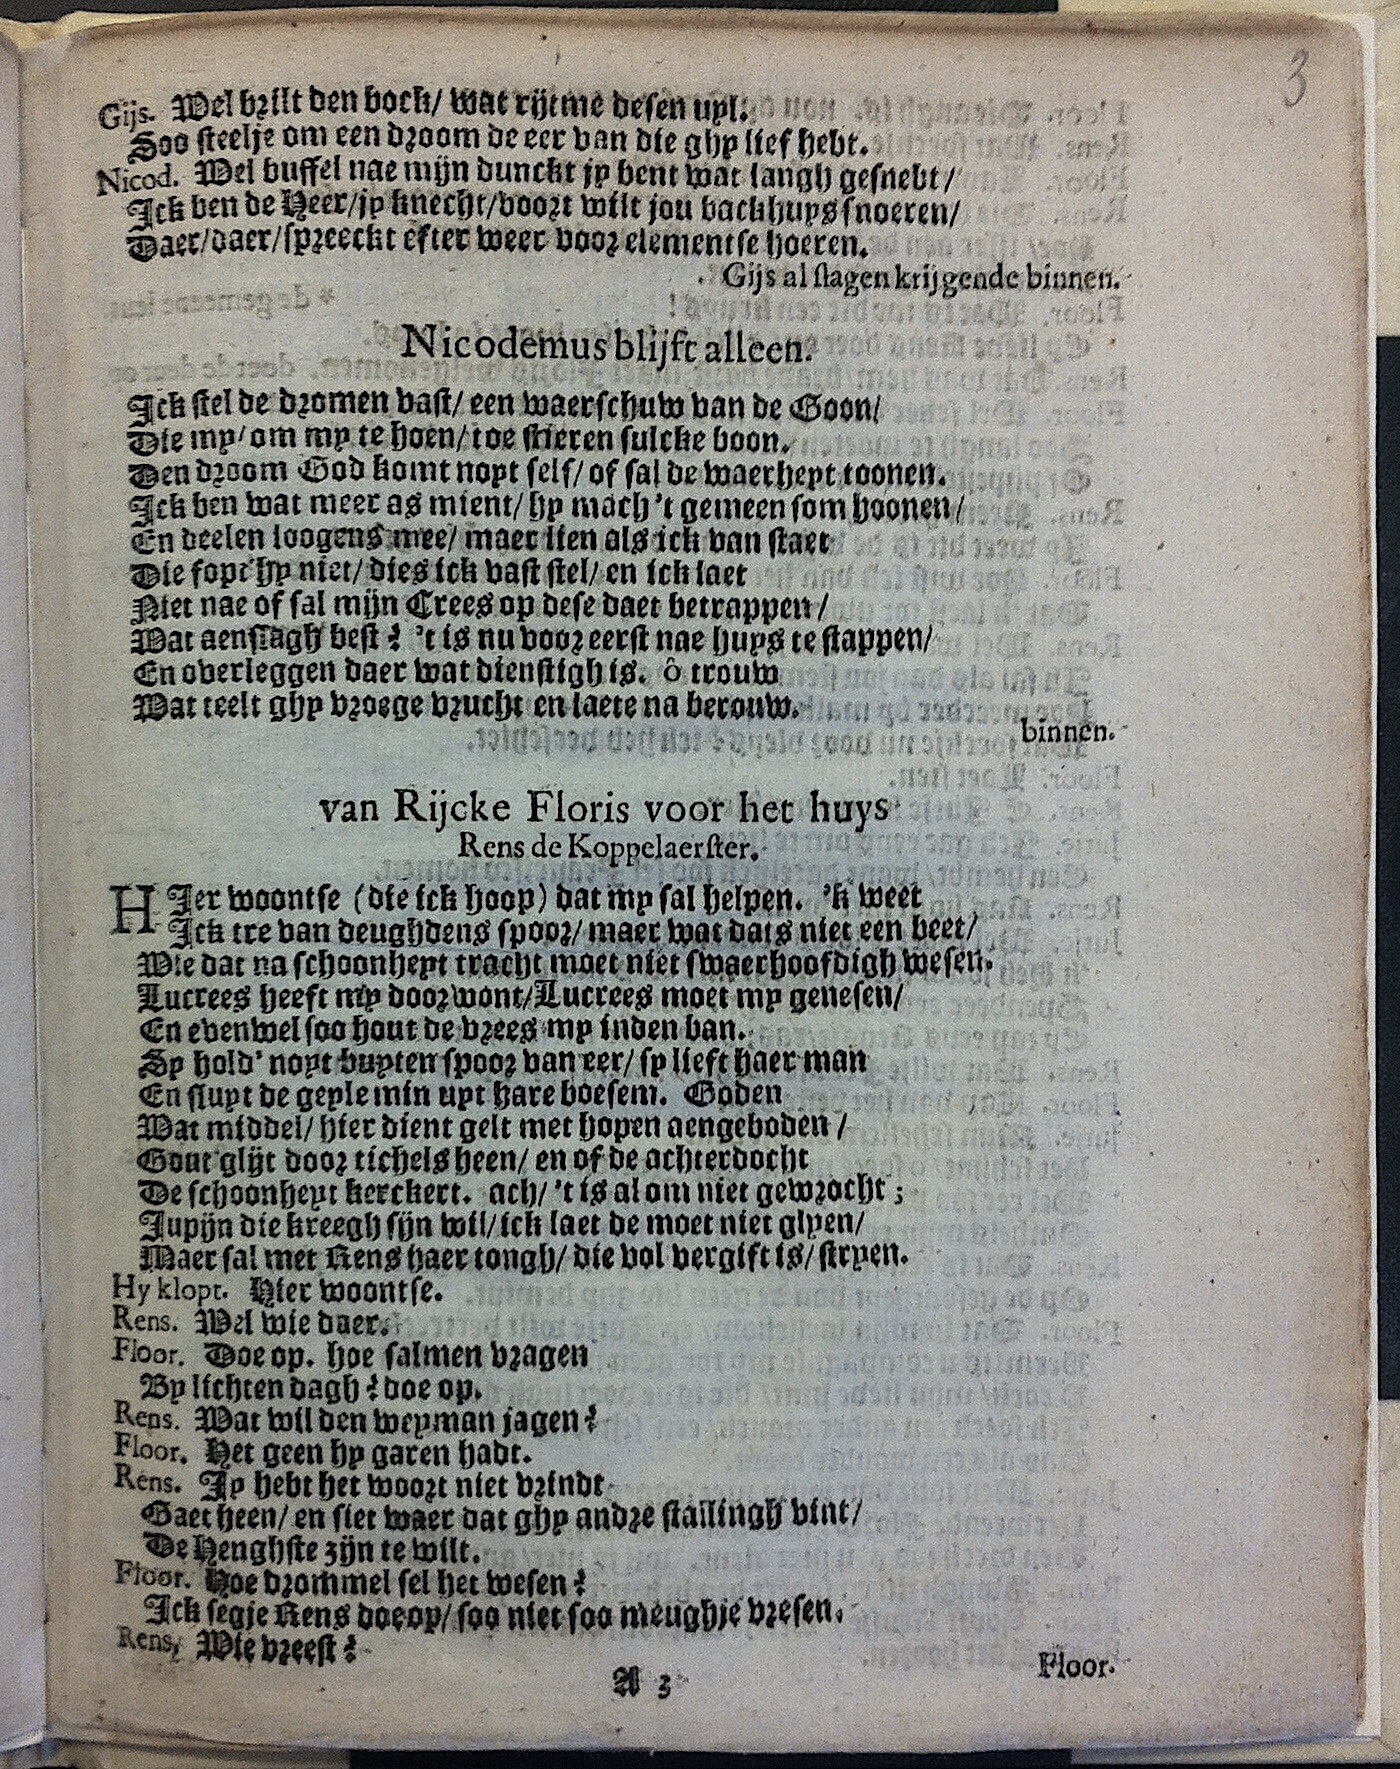 3
Gijs. Wel brilt den bock/ wat rijtme desen uyl.
Soo steelje om een droom de eer van die ghy lief hebt.
Nicod. Wel buffel nae mijn dunckt jy bent wat langh gesnebt/
Ick ben de Heer/jy knecht/voort wilt jou backhuys snoeren/
Daer/daer/spreeckt efter weer voor elementse hoeren.
Gijs al slagen krijgende binnen.
Nicodemus blijft alleen.
Ick stel de dromen vast/ een waerschuw van de Goon/
Die my/om my te hoen/ toe stieren sulcke boon.
Den droom God komt noyt self/ of sal de waerheyt toonen.
Ick ben wat meer as mient/ hy mach 't gemeen som hoonen/
En deelen loogens mee/ maer lien als ick van staet
Die fopt hy niet/ dies ick vast stel/ en ick laet
Niet nae of sal mijn Crees op dese daet betrappen/
Wat aenslagh best? 't is nu voor eerst nae huys te stappen/
En overleggen daer wat dienstigh is. ô trouw
Wat teelt ghy vroege vrucht en laete na berouw.
binnen.
van Rijcke Floris voor het huys
Rens de Koppelaerster.
HIer woontse (die ick hoop) dat my sal helpen. 'k weet
Ick tre van deughdens spoor/ maer wat dats niet een beet/
Wie dat na schoonheyt tracht moet niet swaerhoofdigh wesen.
Lucrees heeft my doorwont/Lucrees moet my genesen/
En evenwel soo hout de vrees my inden ban.
Sy hold' noyt buyten spoor van eer/ sy lieft haer man
En sluyt de geyle min uyt hare boesem. Goden
Wat middel/ hier dient gelt met hopen aengeboden/
Gout glijt door tichels heen/ en of de achterdocht
De schoonheyt kerckert. ach/ 't is al om niet gewrocht;
Jupijn die kreegh sijn wil/ick laet de moet niet glyen/
Maer sal met Rens haer tongh/ die vol vergift is/ stryen.
Hy klopt. Hier woontse.
Rens. Wel wie daer.
Floor. Doe op. hoe salmen vragen
By lichten dagh? doe op.
Rens. Wat wil den weyman jagen?
Floor. Het geen hy garen hadt.
Rens. Jy hebt het woort niet vrindt
Gaet heen/ en siet waer dat ghy andre stallingh vint/
De Henghste zijn te wilt.
Floor. Hoe drommel sel het wesen?
Ick segje Rens doeop/ soo niet soo meughje vresen.
Rens, Wie vreest?
A 3
Floor.